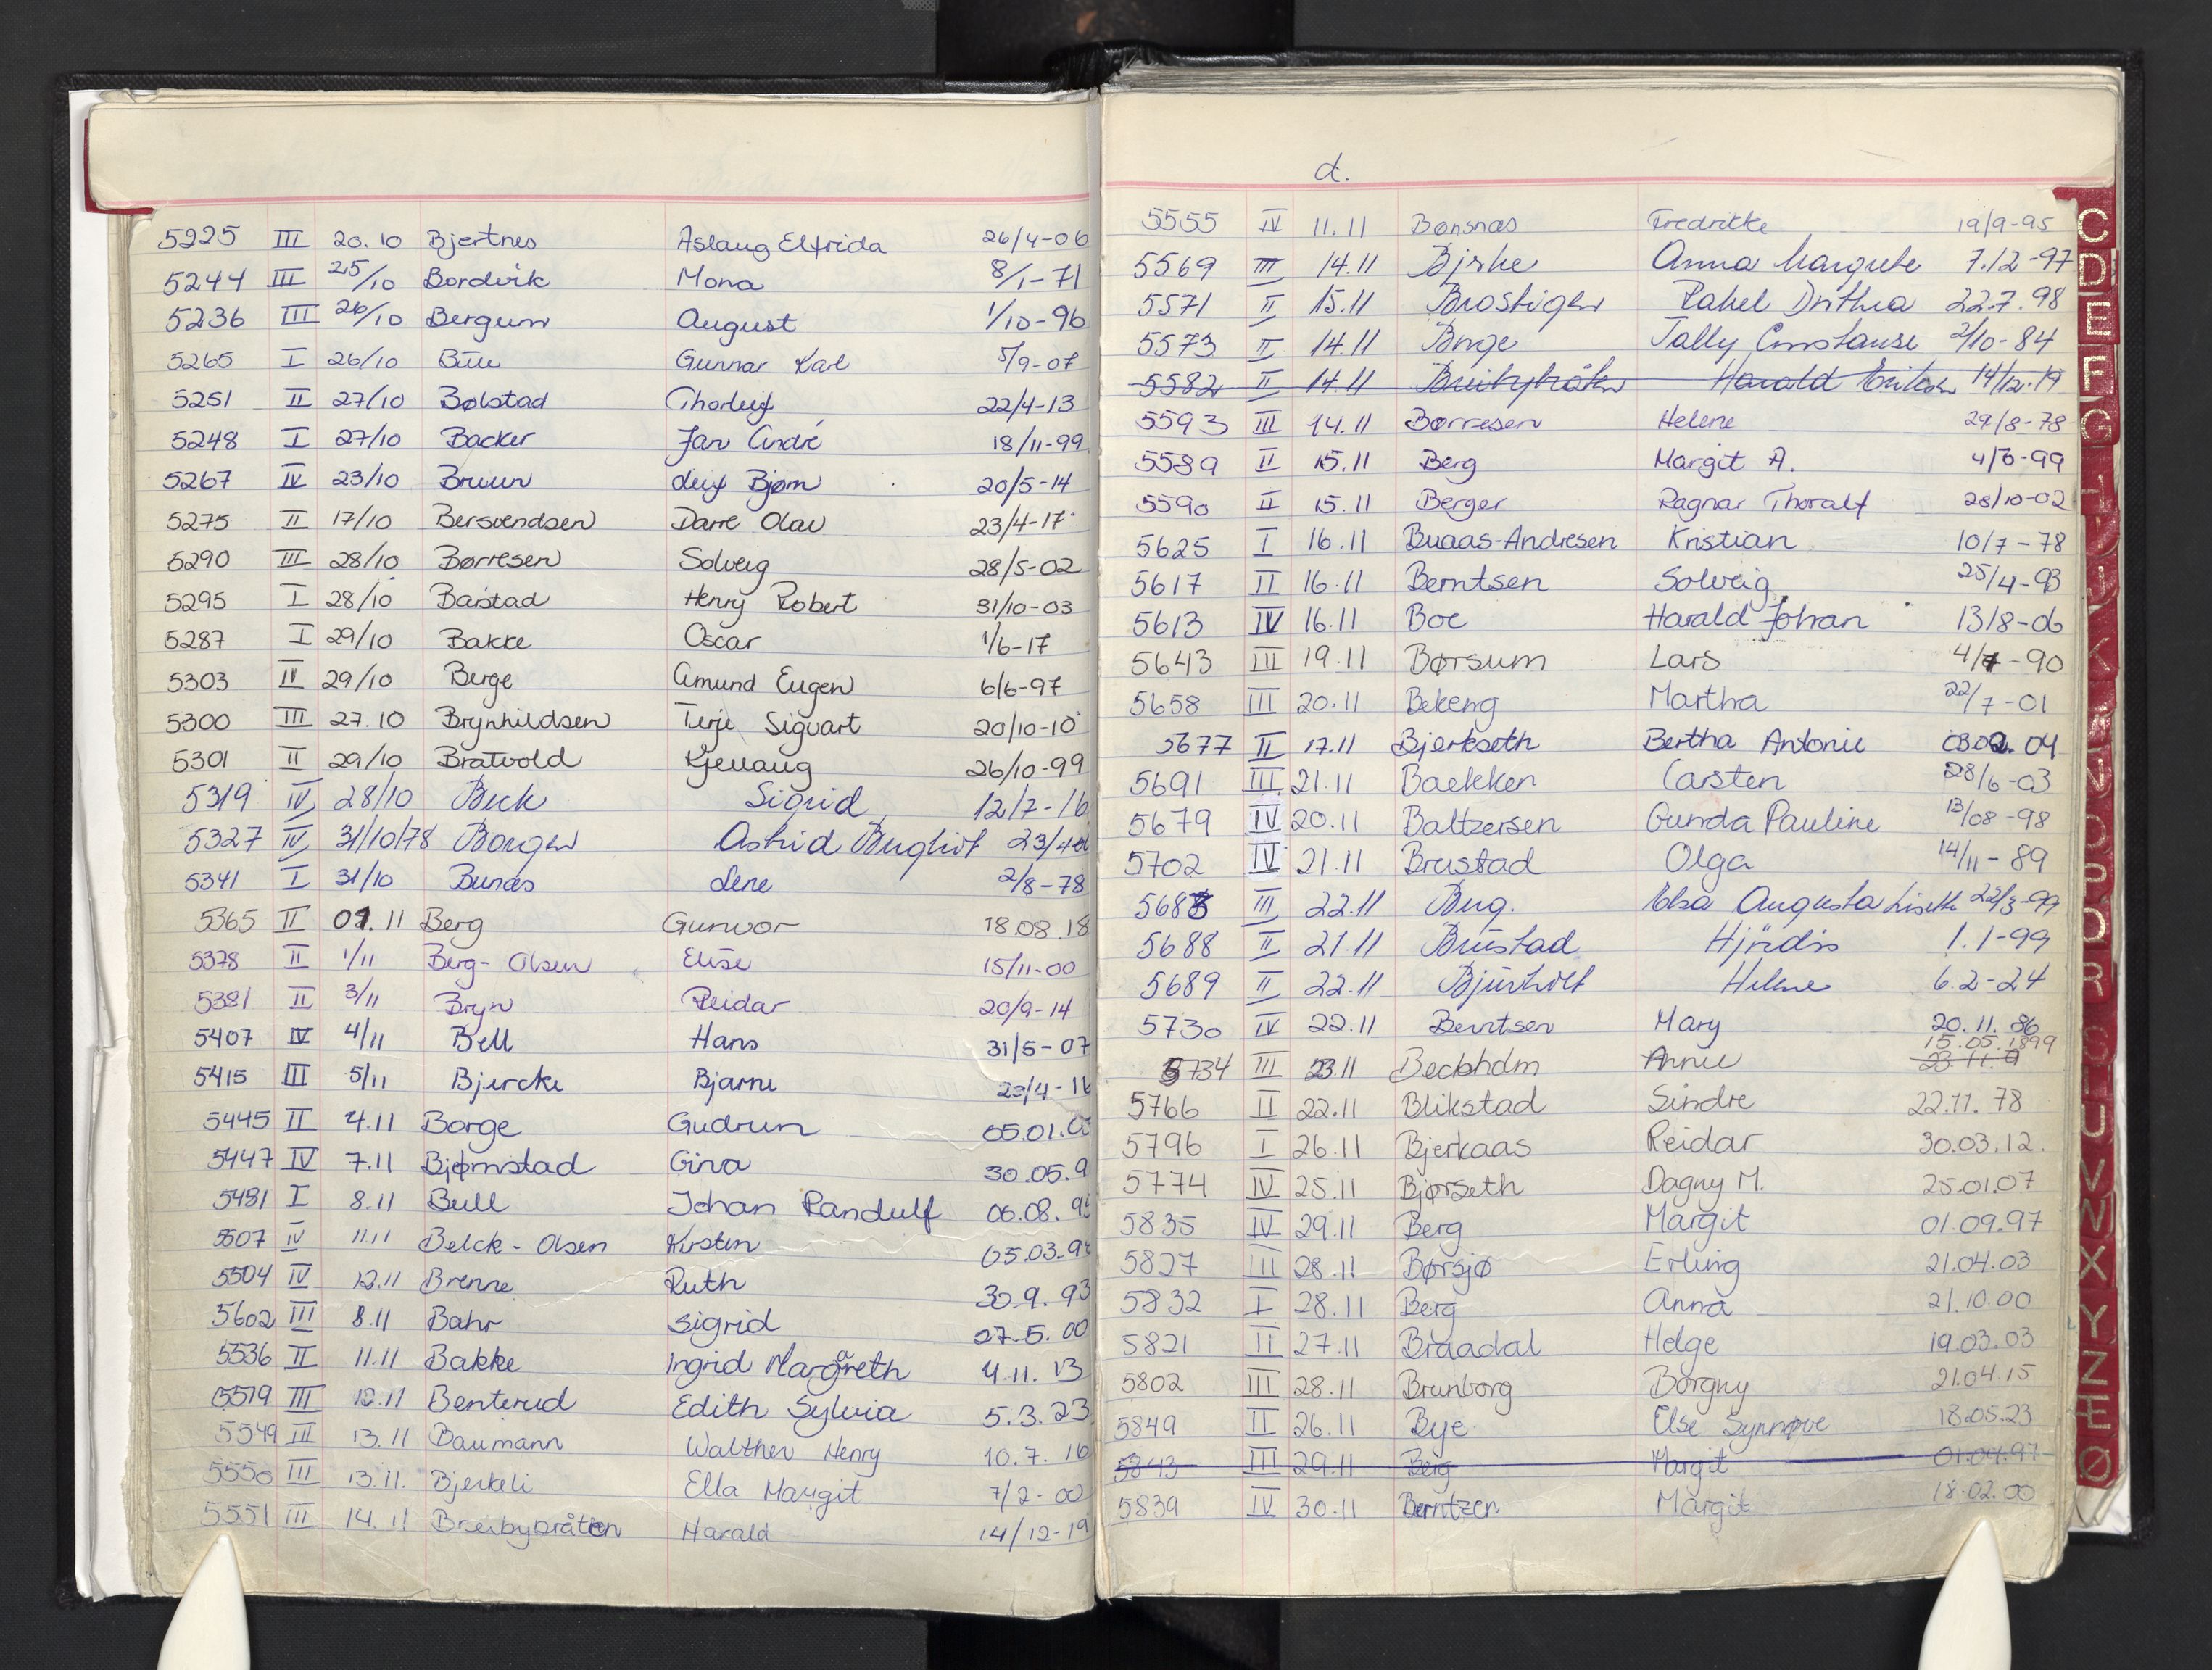 5225 III 20.10 Bjertnes Aslaug Elfrida 26/4-06
5244 III 25/10 Bordvik Mona 8/1-71
5236 III 26/10 Bergum August 1/10-96
5265 I 26/10 Gunnar Karl 5/9-07
5251 II 27/10 Bølstad Thorleif 22/4-13
5248 I 27/10 Backer Jan André 18/11-99
5267 IV 23/10 Bruun Leif Bjørn 20/5-14
5275 II 17/10 Bersvendsen Olav 23/4-17
5290 III 28/10 Børresen Solveig 28/5-02
5295 I 28/10 Barstad Henry Robert 31/10-03
5287 I 29/10 Bakke Oscar 1/6-17
5303 IV 29/10 Berge Amund Eugen 6/6-97
5300 III 27.10 Brynhildsen Terje Sigvart 20/10-10
5301 II 29/10 Bratvold 26/10-99
5319 IV 28/10 Beck Sigrid 12/7-16
5327 IV 31/10/78 Borgen Astrid
5341 I 31/10 Bunæs Lene 2/8-78
5365 II 01.11 Berg Gunvor 18.08.18
5378 II 1/11 Berg-Olsen Elise 15/11-00
5381 II 3/11 Bryn Reidar 20/9-14
5407 IV 4/11 Bell Hans 31/5-07
5415 III 5/11 Bjercke Bjarne
5445 II 4.11 Borge Gudrun 05.01.
5447 IV 7.11 Bjørnstad Gina 30.05.9
5481 I 8.11 Bull Johan Randulf 06.08.9
5507 IV 11.11 Belck-Olsen Kirsten 05.03.9
5504 IV 12.11 Brenne Ruth 30.9.93
5602 III 8.11 Bahr Sigrid 27.5.00
5536 II 11.11 Bakke Ingrid Margreth 4.11.13
5519 III 12.11 Benterud Edith Sylvia 5.3.23
5549 III 13.11 Baumann Walther Henry 10.7.16
5550 III 13.11. Bjerkeli Ella Margit 7/2-00
5551 III 14.11 Breibybråten Harald 14/12-19
d.
5555 IV 11.11 Bonsnæs Fredrikke 19/9-95
5569 III 14.11 Bjerke Anna Margrete 7.12-97
5571 II 15.11 Rakel 22.7.98
5573 II 14.11 2/10-84
5582 II 14.11 Breibybråten Harald 14/12.19
5593 III 14.11 Børresen Helene 29/8-78
5589 II 15.11 Berg Margit A. 4/6-99
5590 II 15.11 Berger Ragnar Thoralf 28/10-02
5625 I 16.11 Buaas-Andresen Kristian 10/7-78
5617 II 16.11 Berntsen Solveig 25/4-93
5613 IV 16.11 Boe Harald Johan 13/8-06
5643 III 19.11 Børsum Lars 4/7-90
5658 III 20.11 Bekeng Martha 22/7-01
5677 II 17.11 Bjerkseth Bertha Antonie 03.02.04
5691 III 21.11 Baekken Carsten 28/6-03
5679 IV 20.11 Baltzersen Gunda Pauline 13/08-98
5702 IV 21.11 Brustad Olga 14/11-89
5683 III 22.11 Berg. Augusta
5688 II 21.11 Brustad Hjørdis 1.1-99
5689 II 22.11 Bjurholt Helene 6.2-24
5730 IV 22.11 Berntsen Mary 20.11.86
15.05.1899
5734 III 23.11 Beckholm Annie 23.11.
5766 II 22.11 Blikstad Sindre 22.11.78
5796 I 26.11 Bjerkaas Reidar 30.03.12.
5774 IV 25.11 Bjørseth Dagny M. 25.01.07
5835 IV 29.11 Berg Margit 01.09.97
5827 III 28.11 Børsjø Erling 21.04.03
5832 I 28.11 Berg Anna 21.10.00
5821 II 27.11 Braadal Helge 19.03.03
5802 III 28.11 Brunborg Borgny 21.04.15
5849 II 26.11 Bye Else Synnøve 18.05.23
5843 III 29.11 Berg Margit 01.04.97
5839 IV 30.11 Berntzen Margit 18.02.00
C
D
E
F
G
I
J
K
N
O
P
R
S
U
V
X
Y
Z
Æ
Ø